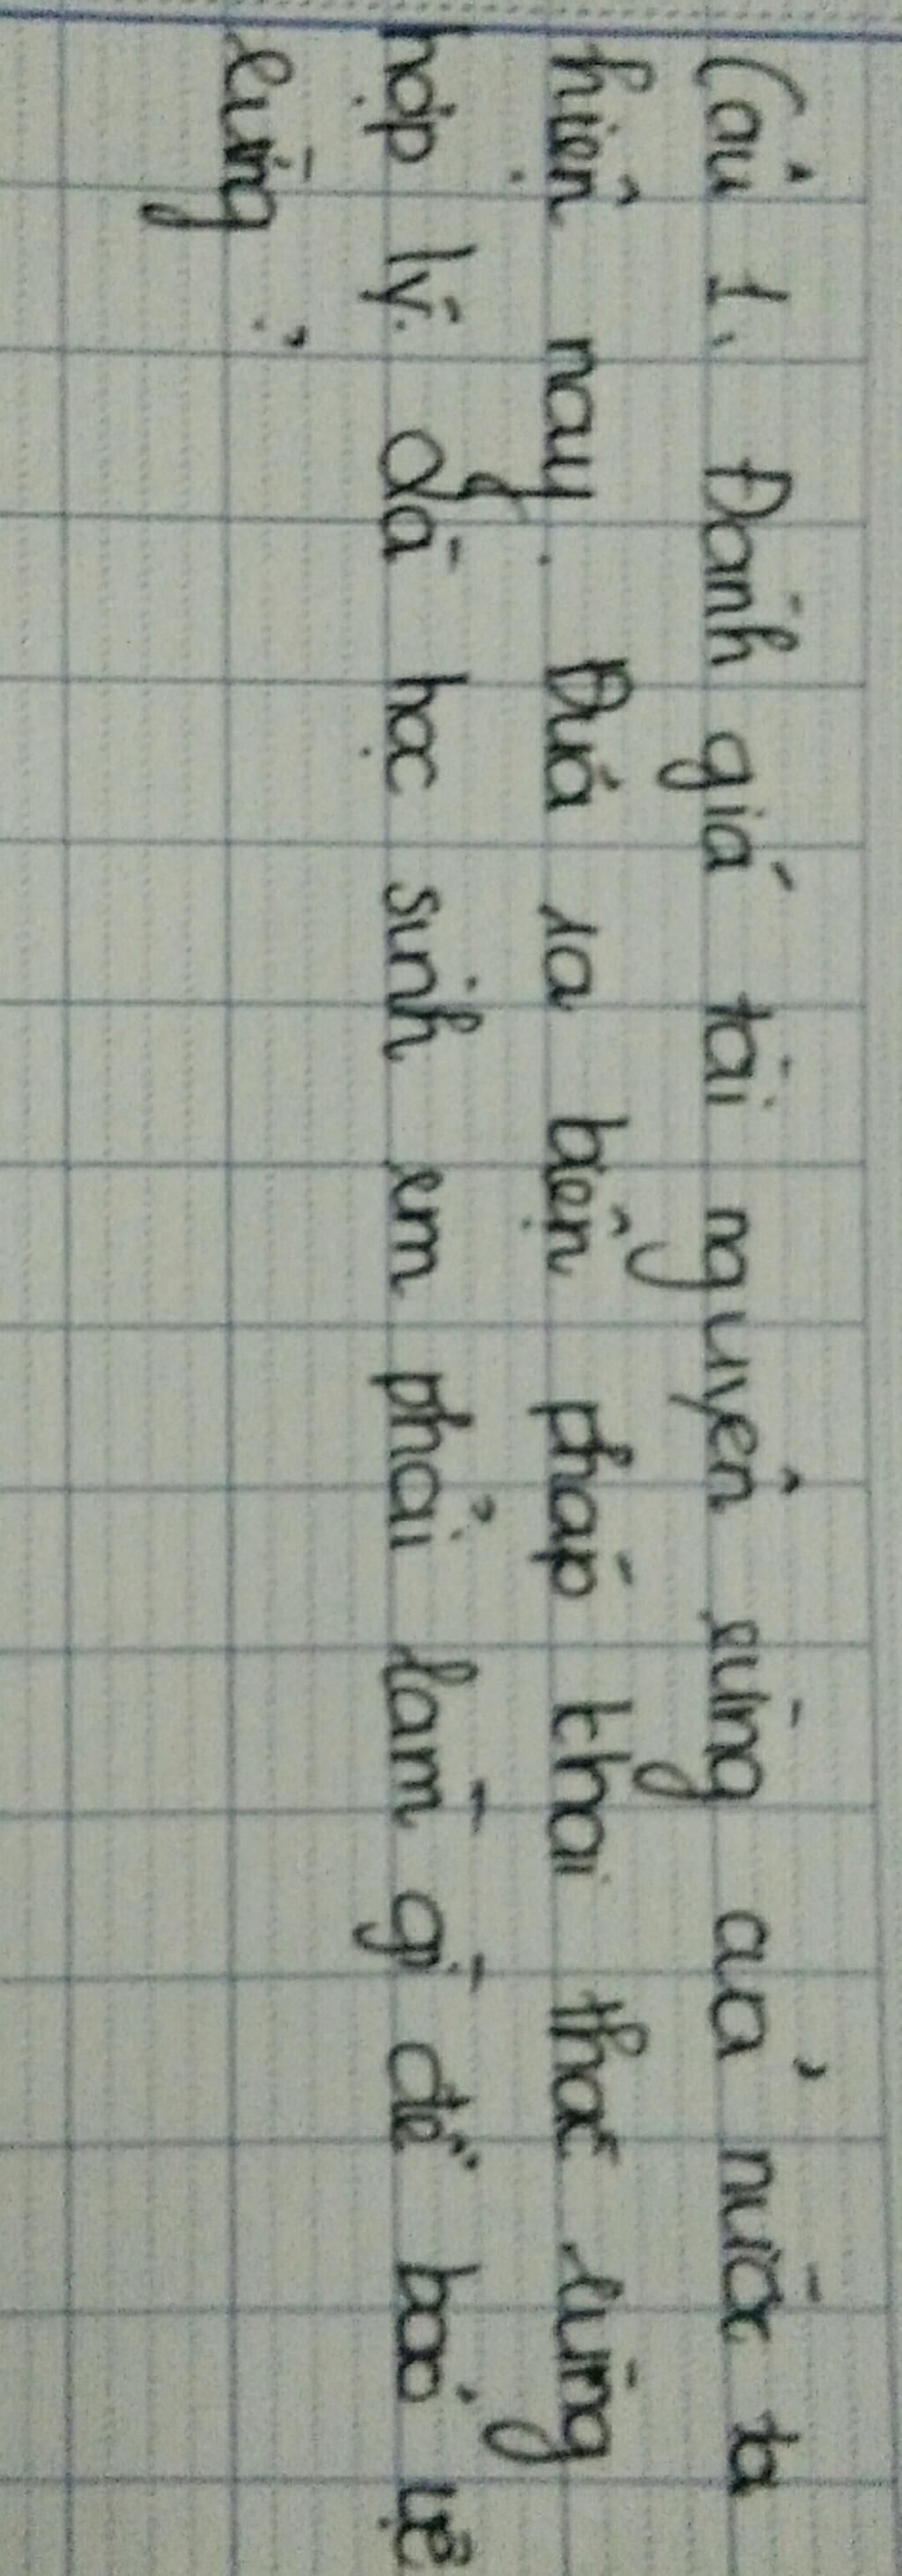 Câu 1. Đánh giá tài nguyên rừng của nước ta
hiện nay. Đưa ra biện pháp khai thác rừng
hợp lý. Là học sinh em phải làm gì để bảo vệ
rừng?